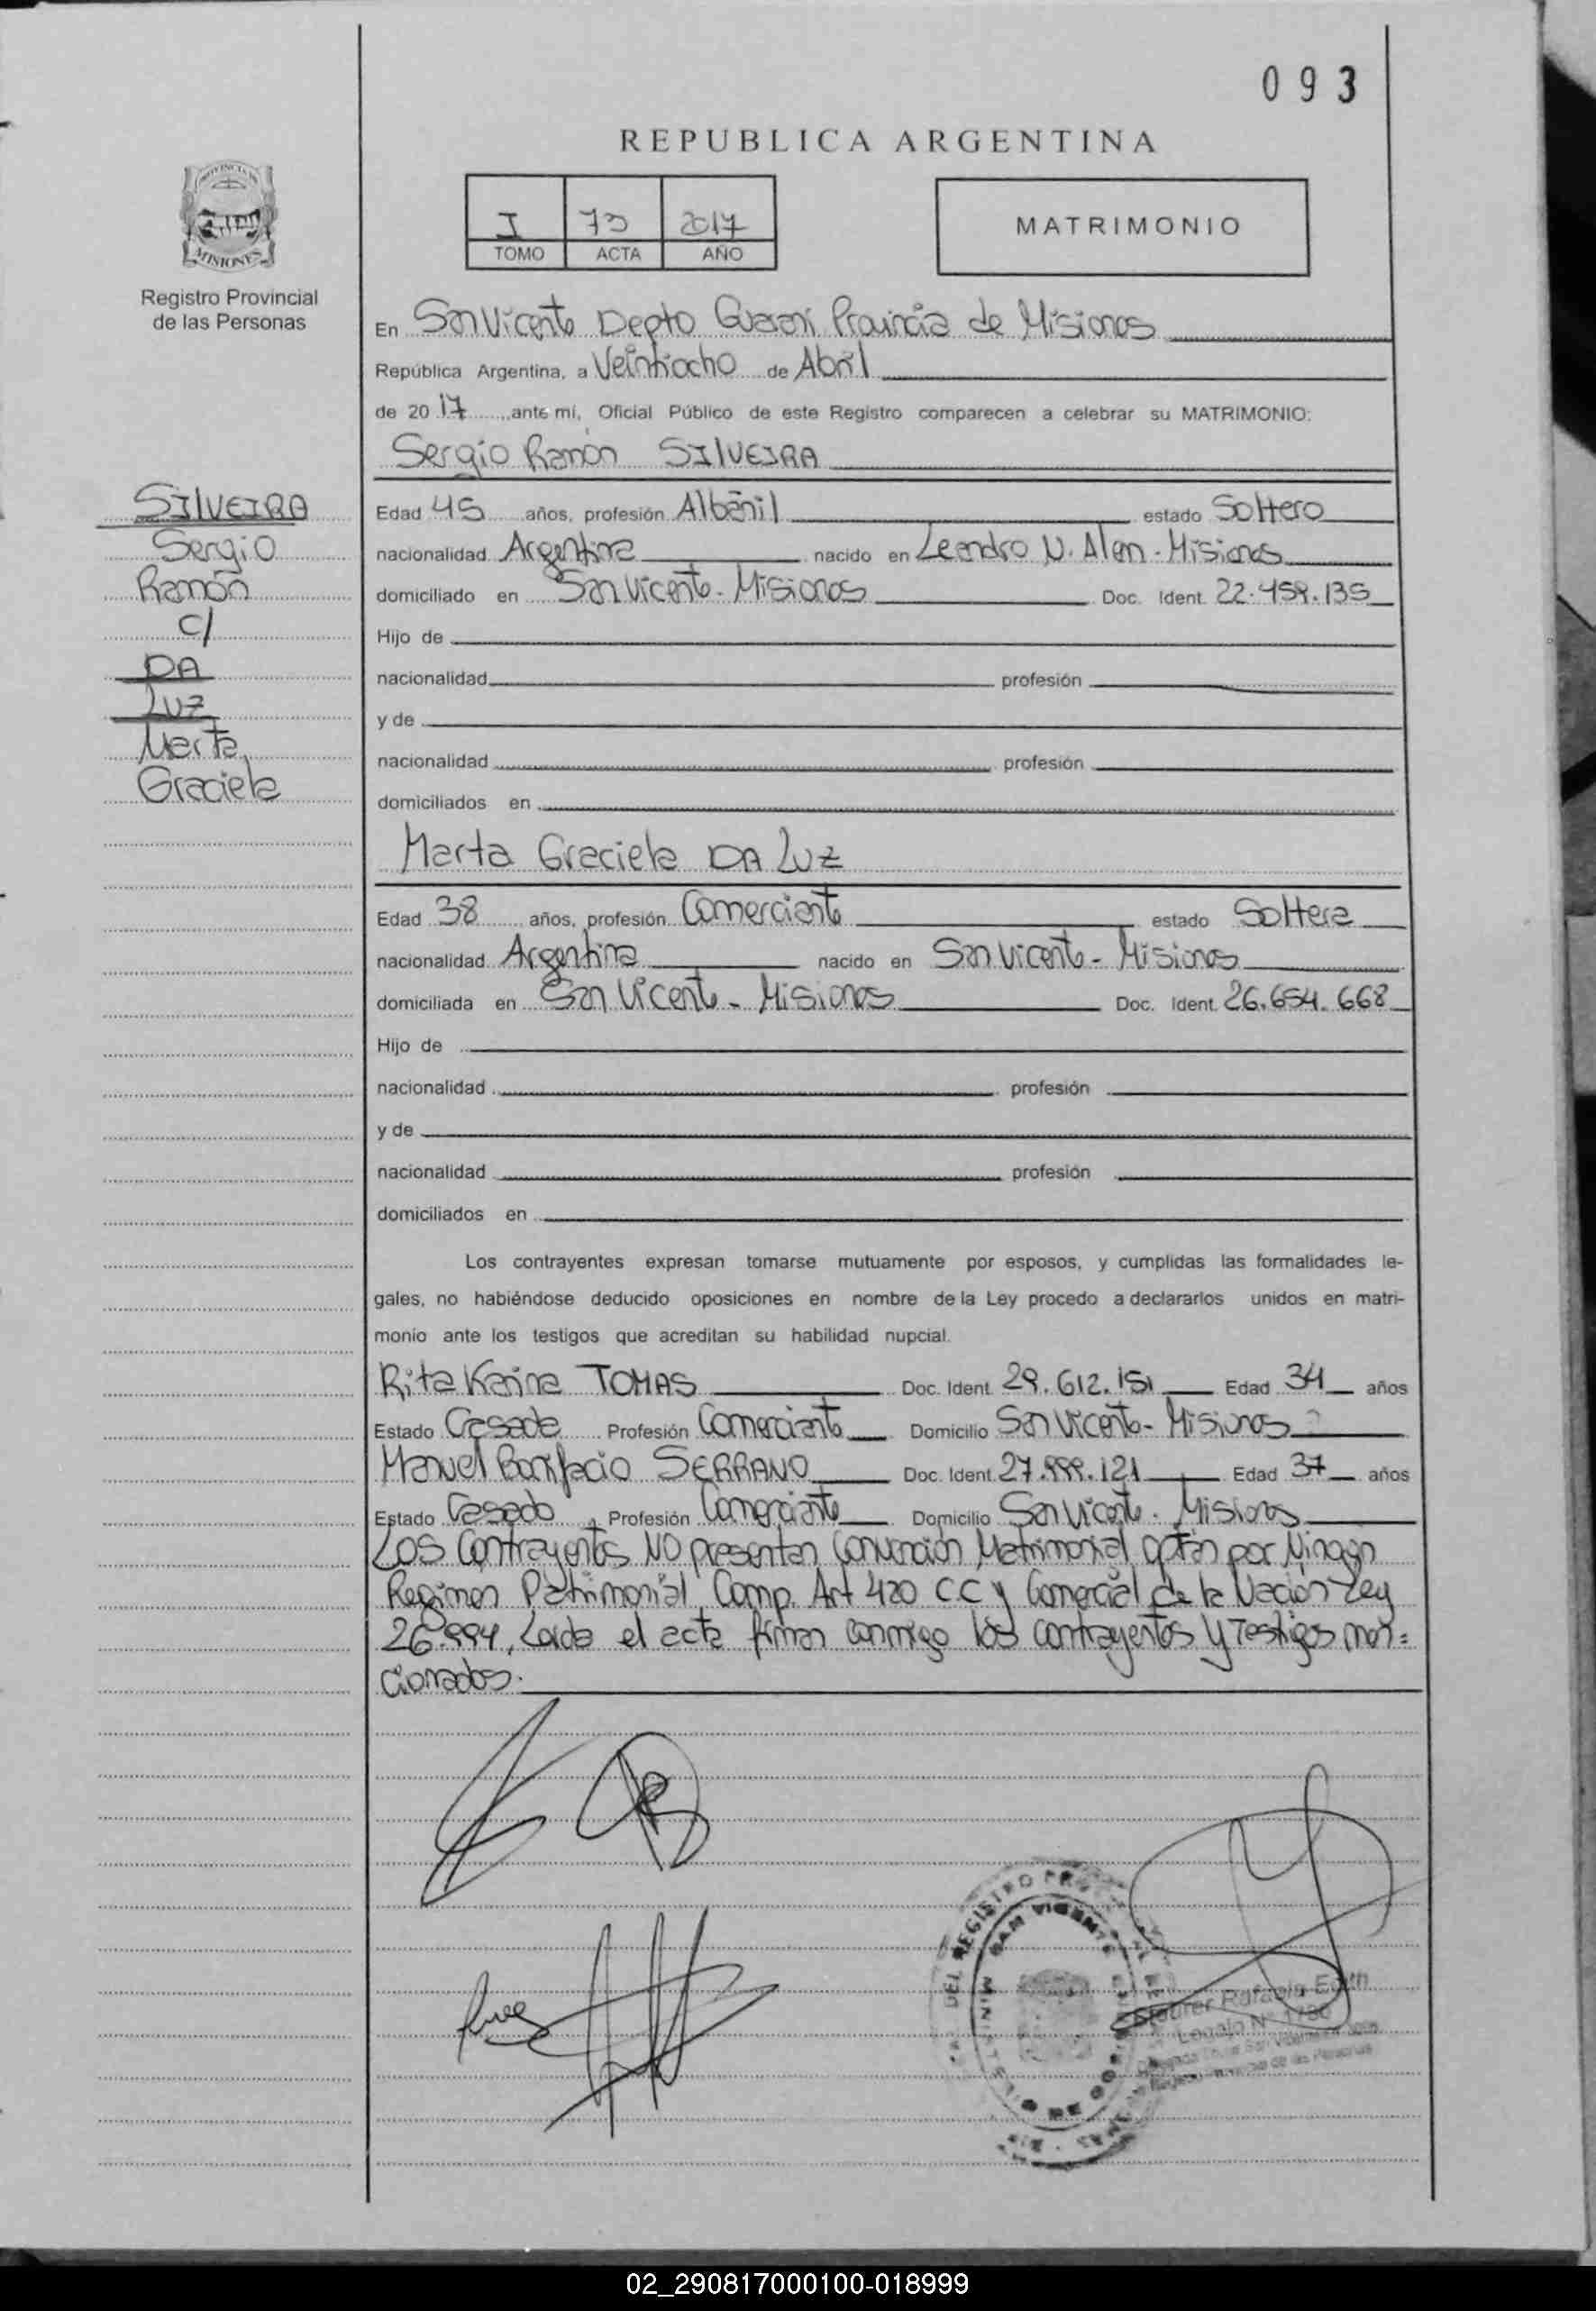 093
REPUBLICA ARGENTINA
I 73 2017
TOMO ACTA AÑO
MATRIMONIO
PROVINCIA DE
MISIONES
Registro Provincial
de las Personas
En San Vicente Depto Guaraní Provincia de Misiones
República Argentina, a Veintiocho de Abril
de 2017 ante mí, Oficial Público de este Registro comparecen a celebrar su MATRIMONIO:
Sergio Ramón SILVEIRA
SILVEIRA
Sergio
Ramón
C/
DA
LUZ
Marta
Graciela
Edad 45 años, profesión Albañil estado Soltero
nacionalidad Argentina nacido en Leandro N. Alem - Misiones
domiciliado en San Vicente - Misiones Doc. Ident. 22.459.135
Hijo de
nacionalidad profesión
y de
nacionalidad profesión
domiciliados en
Marta Graciela DA LUZ
Edad 38 años, profesión Comerciante estado Soltera
nacionalidad Argentina nacido en San Vicente - Misiones
domiciliada en San Vicente - Misiones Doc. Ident. 26.654.668
Hijo de
nacionalidad profesión
y de
nacionalidad profesión
domiciliados en
Los contrayentes expresan tomarse mutuamente por esposos, y cumplidas las formalidades le-
gales, no habiéndose deducido oposiciones en nombre de la Ley procedo a declararlos unidos en matri-
monio ante los testigos que acreditan su habilidad nupcial.
Rita Karina TOMAS Doc. Ident. 29.612.151 Edad 34 años
Estado Casada Profesión Comerciante Domicilio San Vicente - Misiones
Manuel Bonifacio SERRANO Doc. Ident. 27.999.121 Edad 37 años
Estado Casado Profesión Comerciante Domicilio San Vicente - Misiones
Los Contrayentes NO presentan Convención Matrimonial optan por Ningún
Regimen Patrimonial Comp. Art 420 CC y Comercial de la Nacion Ley
26.994, Leída el acta firman conmigo los contrayentes y Testigos men=
cionados.
DEL REGISTRO
SAN VICENTE
Rafaela Edith
Legajo N°
de las Personas
02_290817000100-018999